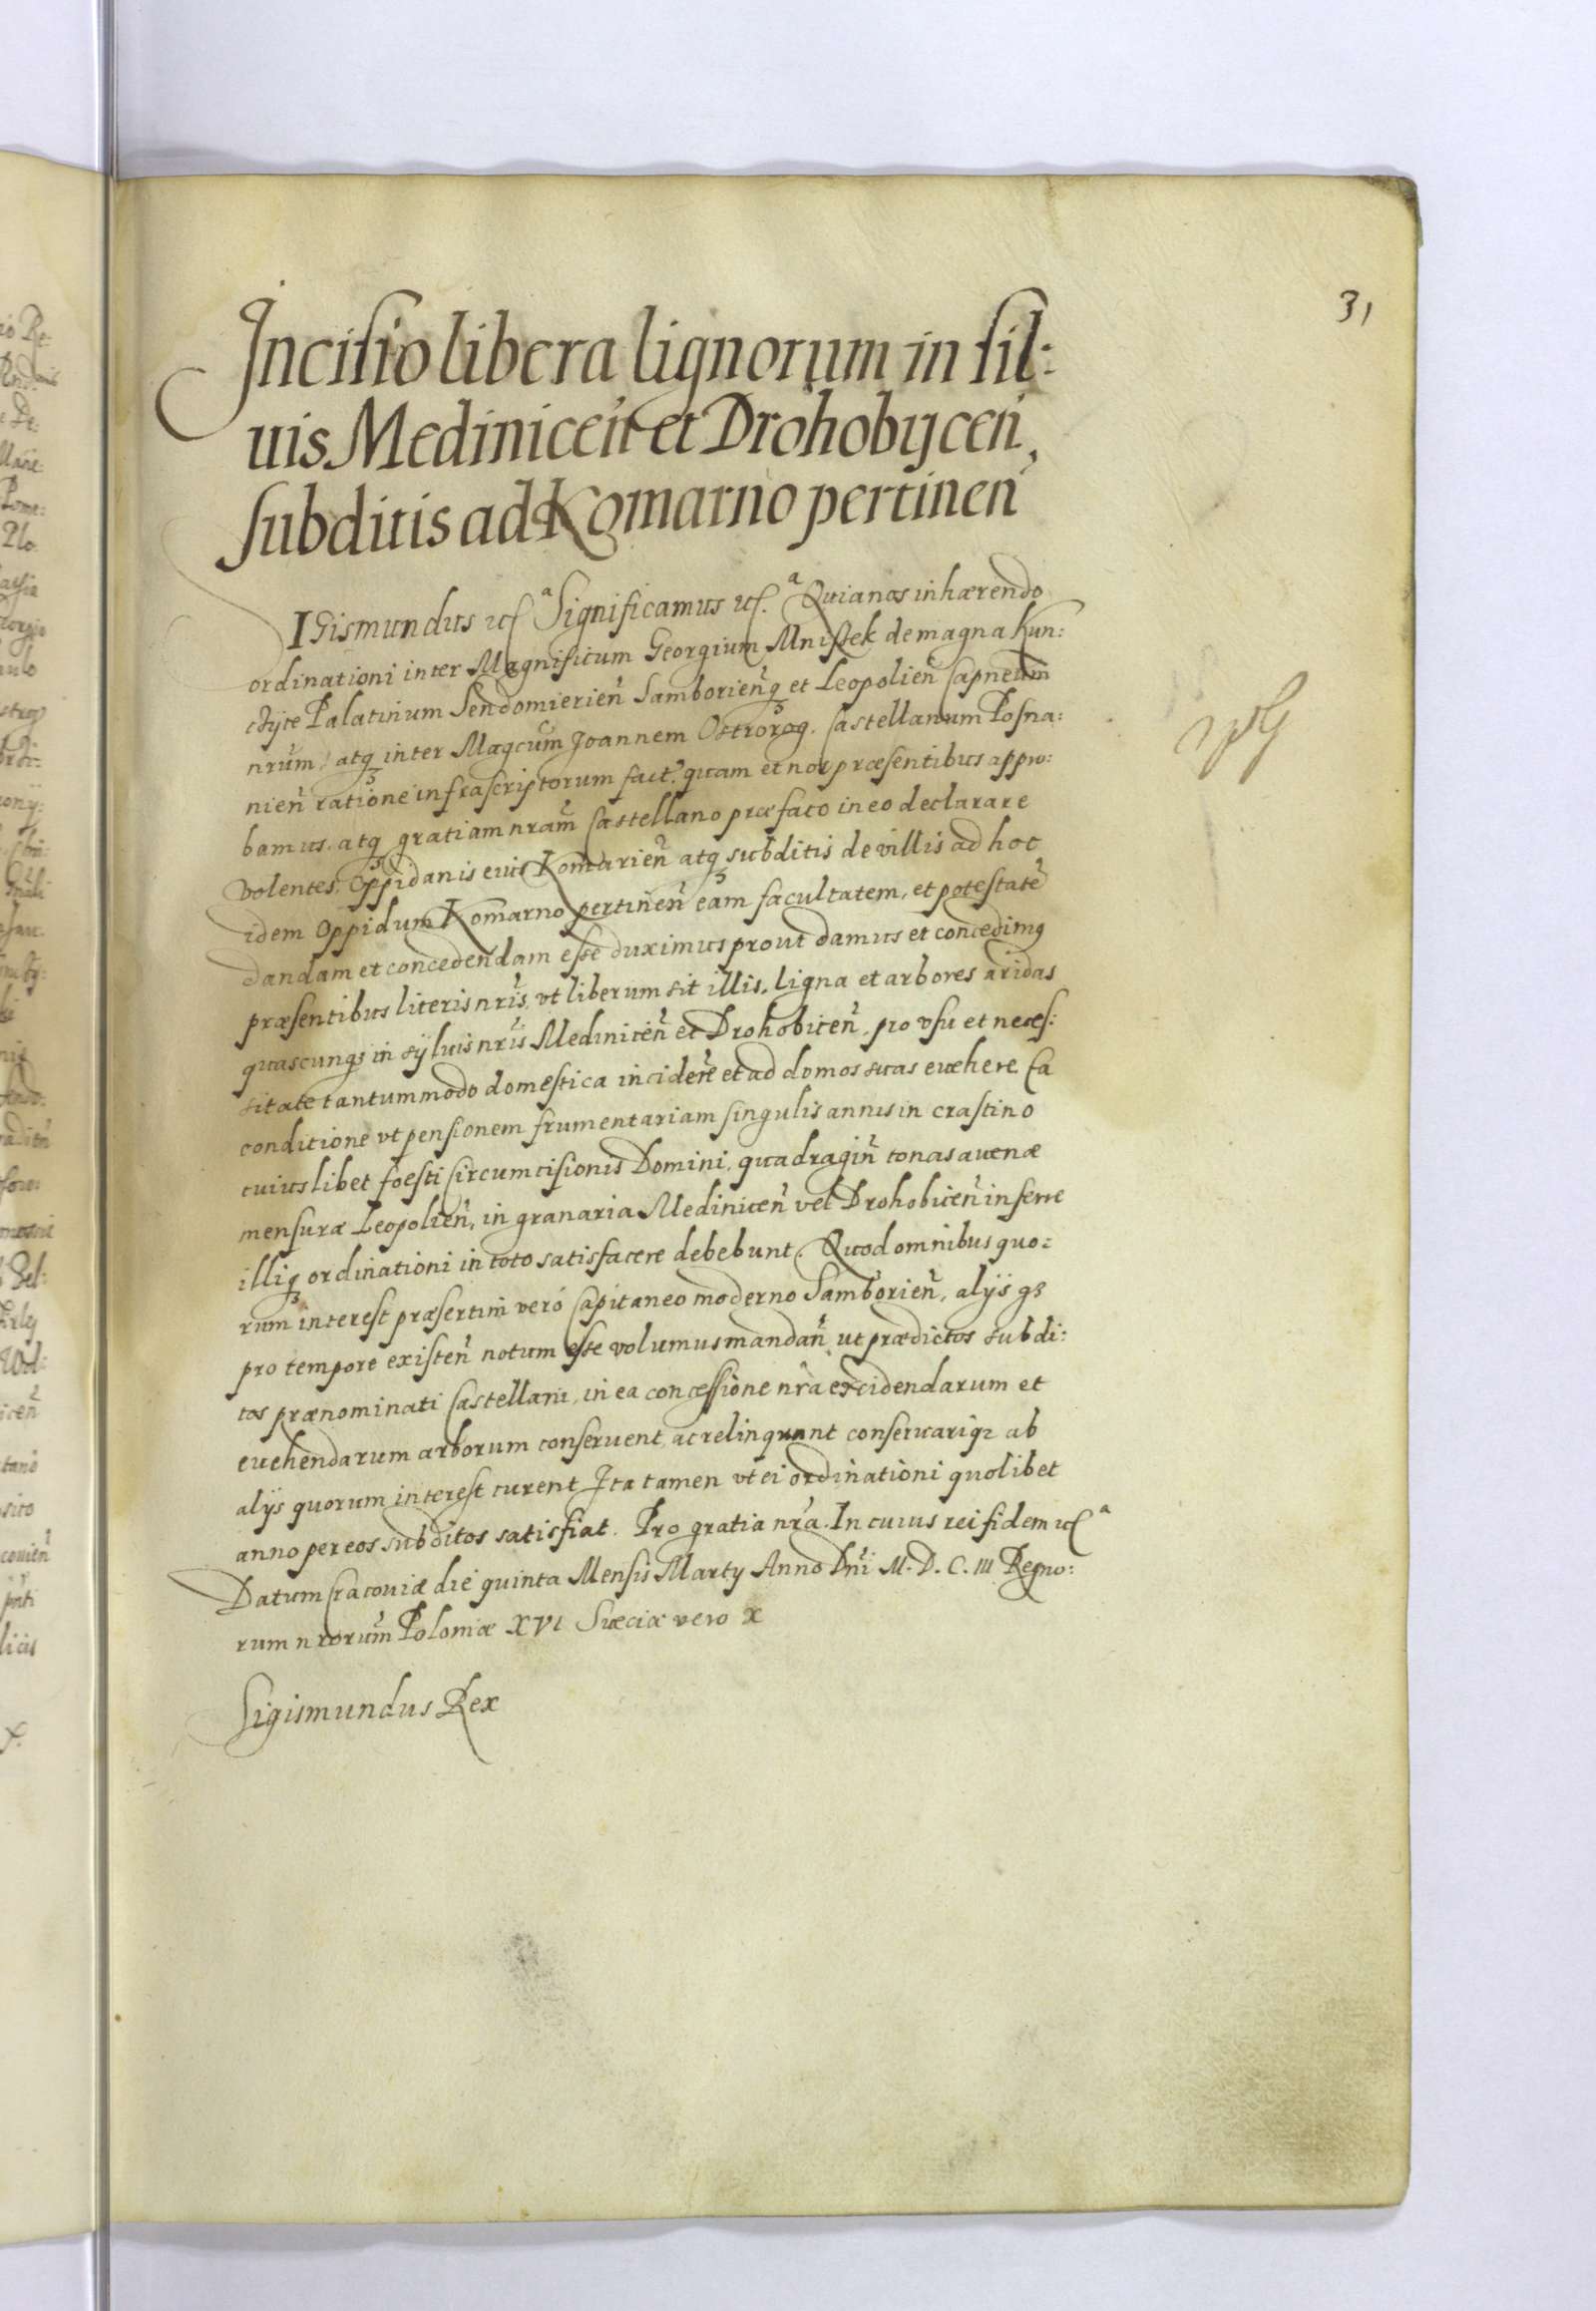 31
Incisio libera lignorum in sil:
uis Medinicen̄ et Drohobÿcen̄,
subditis ad Komarno pertinen̄
IGismundus etc̃ᵃ Significamus etc̃.ᵃ Quia nos inhærendo
ordinationi inter Magnificum Georgium Mnissek de magna Kun:
cżÿce Palatinum Sendomierien̄ Samborien̄q̨ et Leopolien̄ Capneum
nrūm, atq̨ inter Magcūm Joannem Ostrorog. Castellanum Posna:
nien̄ ratione infrascriptorum fact: quam et nos præsentibus appro:
bamus. atq̨ gratiam nrām Castellano præfato in eo declarare
volentes. Oppidanis eius Komarien̄ atq̨ subditis de villis ad hoc
idem Oppidum Komarno pertinen̄ eam facultatem, et potestatē
dandam et concedendam esse duximus prout damus et concedimꝰ
præsentibus literis nrīs, vt liberum sit illis, Ligna et arbores aridas
quascunq̨ in sÿluis nrīs Medinicen̄ et Drohobicen̄, pro vsu et neces:
sitate tantummodo domestica incidere et ad domos suas euehere Ea
conditione vt pensionem frumentariam singulis annis in crastino
cuiuslibet foesti Circumcisionis Domini, quadragin̄ tonas auenæ
mensuræ Leopolien̄, in granaria Medinicen̄ vel Drohobicen̄ inferre
illiq̨ ordinationi in toto satisfacere debebunt. Quod omnibus quo:
rum interest præsertim verò Capitaneo moderno Samborien̄, alÿs qȝ
pro tempore existen̄ notum esse volumus mandan̄ ut prædictos subdi:
tos prænominati Castellani, in ea concessione nrā excidendarum et
euehendarum arborum conseruent, ac relinquant conseruariqȝ ab
alÿs quorum interest curent Ita tamen vt ei ordinationi quolibet
anno per eos subditos satisfiat. Pro gratia nrā. In cuius rei fidem etc̃ᵃ
Datum Cracouiæ die quinta Mensis Martÿ Anno Dnī M. D. C. III Regno:
rum nrorūm Poloniæ XVI Sueciæ vero X
Sigismundus Rex